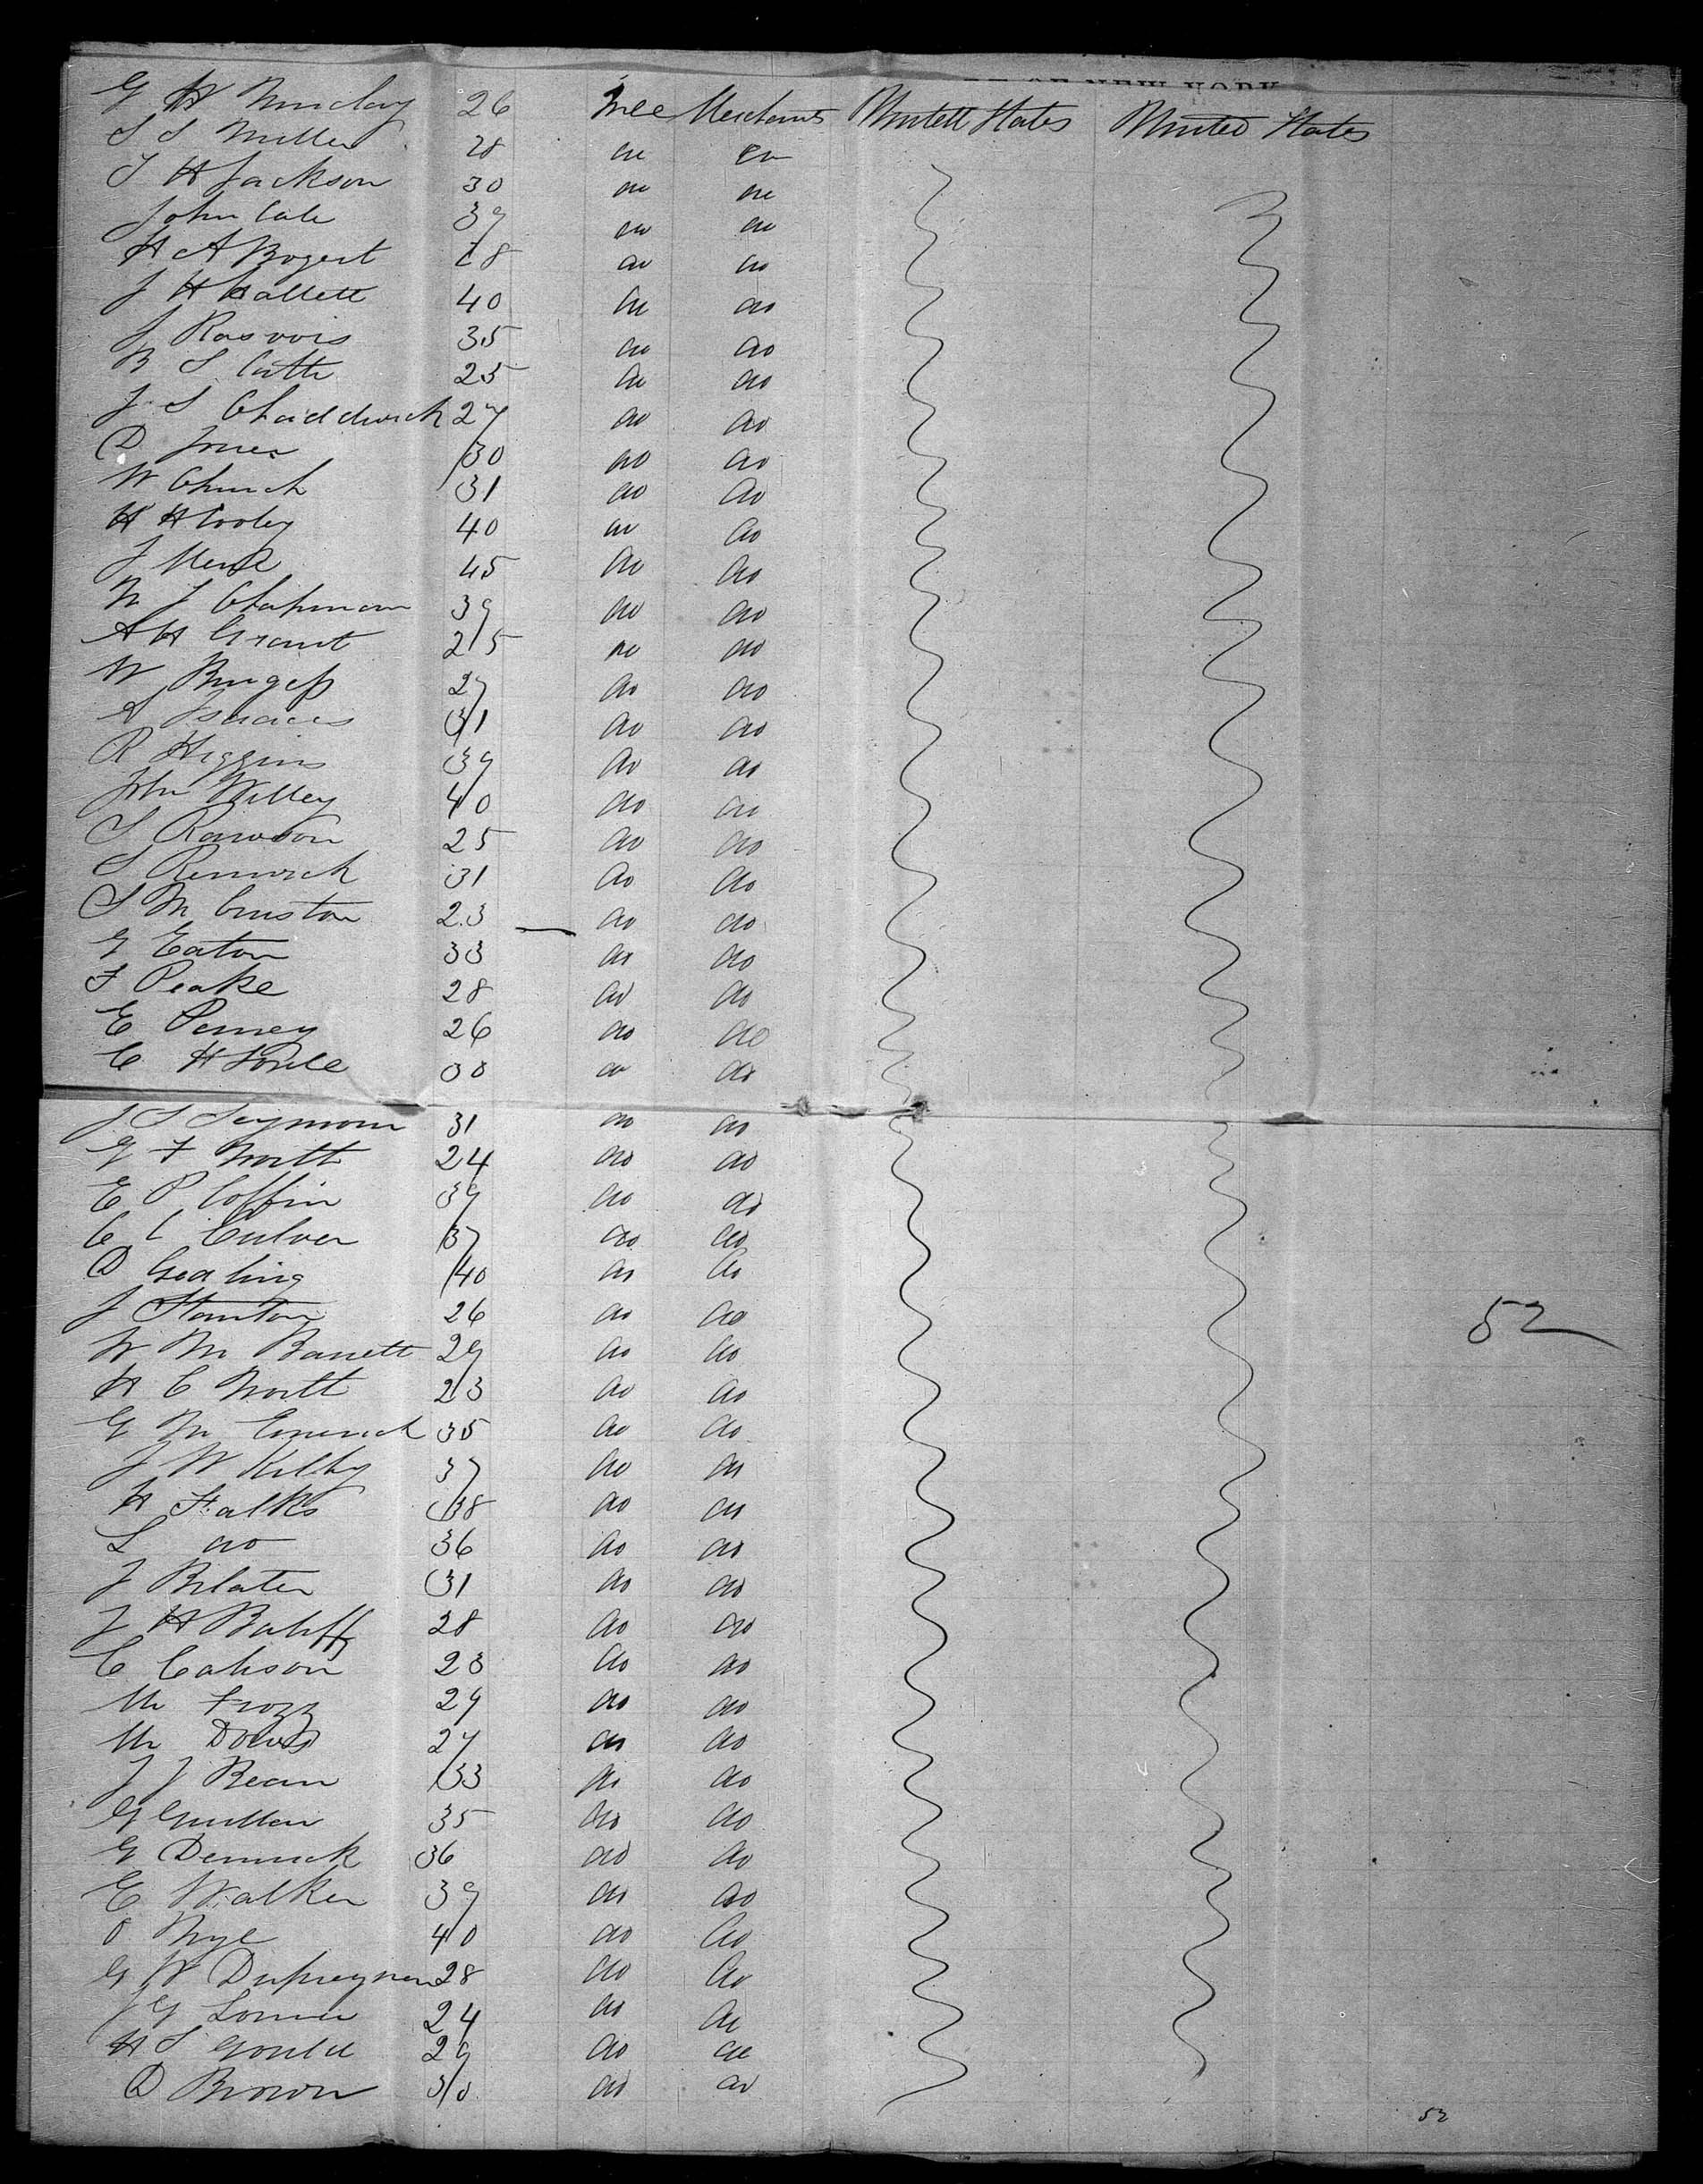 NEW YORK
G W 26 Male Merchants United States United States
S S Miller 28 do do
T H Jackson 30 do do
John Cale 39 do do
H A Bogert 28 do do
J H Hallett 40 do do
J 35 do do
B S 25 do do
J S Chaddwick 27 do do
D Jones 30 do do
W Church 31 do do
H Hooley 40 do do
J 45 do do
N J Chapman 39 do do
A H Grant 25 do do
W Burgess 29 do do
A Isaacs 31 do do
R Higgins 39 do do
John Willey 40 do do
S Rawson 25 do do
S Renwick 31 do do
S M 23 do do
G Eaton 33 do do
F Peake 28 do do
E 26 do do
C H 30 do do
J S Seymour 31 do do
G F North 24 do do
E P Coffin 39 do do
C C Culver 37 do do
D 40 do do
J Stanton 26 do do
52
W M Barrett 29 do do
H C North 23 do do
G M 35 do do
J W Kilby 37 do do
H Falks 38 do do
L do 36 do do
J 31 do do
J H 28 do do
C 23 do do
M 29 do do
M Dows 27 do do
J J Bean 33 do do
G 35 do do
G 36 do do
E Walker 39 do do
O Nye 40 do do
G W 28 do do
J G 24 do do
H S Gould 29 do do
D Brown 30 do do
52